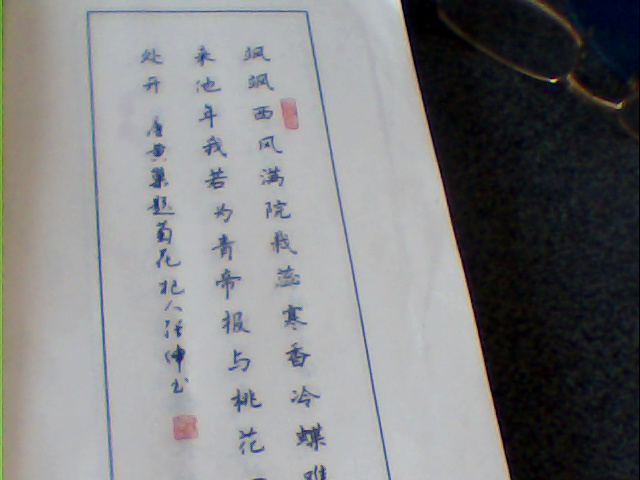 飒飒西风满院栽蕊寒香冷蝶难
来他年我若为青帝报与桃花一
处开 唐黄巢题菊花 杞人